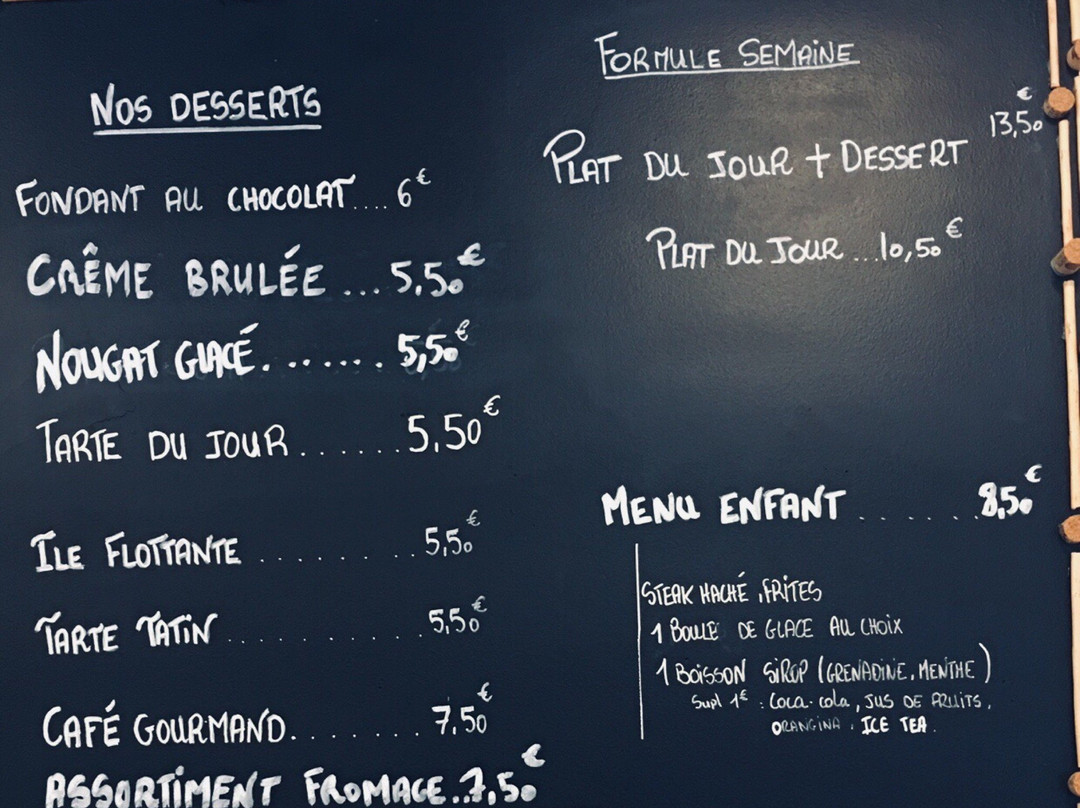 NOS DESSERTS
FONDANT AU CHOCOLAT.... 6€
CRÊME BRULÉE ... 5,50€
NOUGAT GLACÉ. ...... . 5,50€
TARTE DU JOUR....... 5,50€
ILE FLOTTANTE ......... 5,50€
TARTE TATIN ........... 5,50€
CAFÉ GOURMAND........ 7,50€
ASSORTIMENT FROMAGE..7,50€
FORMULE SEMAINE
PLAT DU JOUR + DESSERT 13,50€
PLAT DU JOUR ...10,50€
MENU ENFANT ...... 8,50€
STEAK HACHÉ, FRITES
1 BOULE DE GLACE AU CHOIX
1 BOISSON SIROP (GRENADINE, MENTHE)
Supl 1€ : Coca-cola, JUS DE FRUITS,
ORANGINA, ICE TEA.